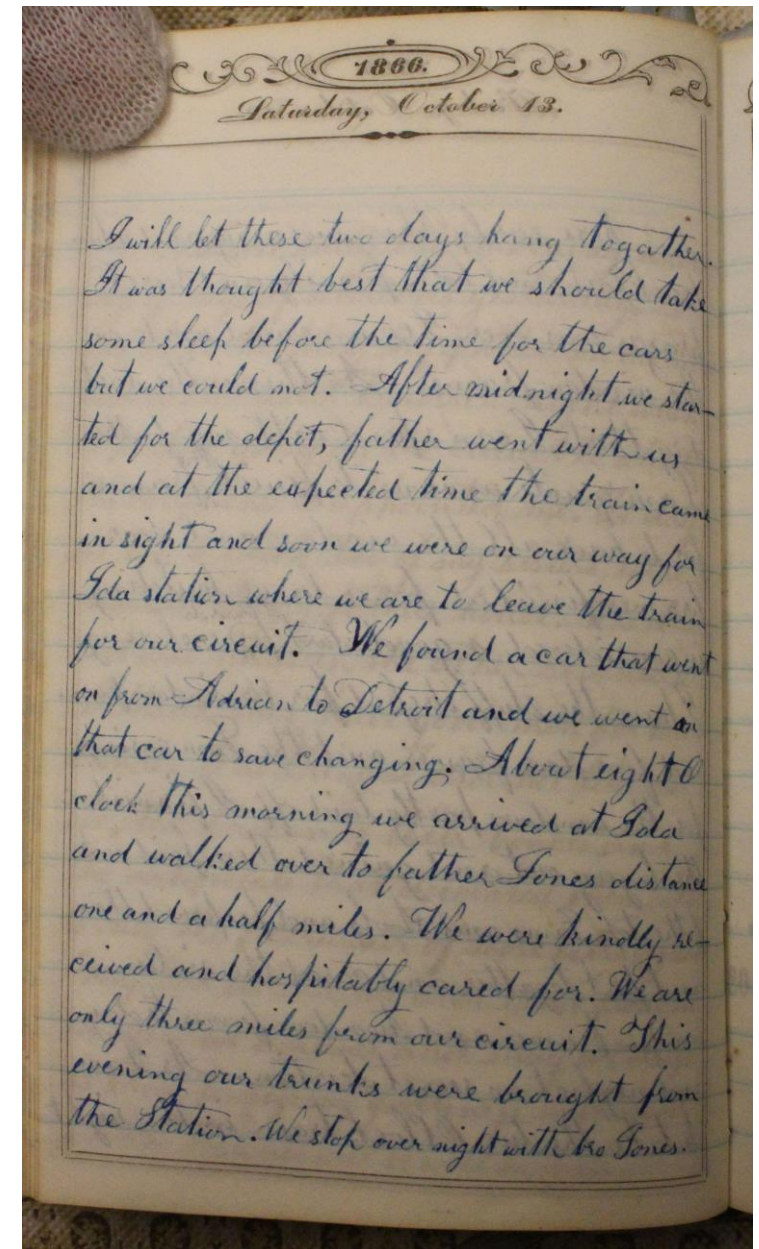 1866.
Saturday, October 13.
I will let these two days hang togather.
It was thought best that we should take
some sleep before the time for the cars
but we could not. After midnight we star-
ted for the depot, father went with us
and at the expected time the train came
in sight and soon we were on our way for
Ida station where we are to leave the train
for our circuit. We found a car that went
on from Adrian to Detroit and we went in
that car to save changing. About eight O
clock this morning we arrived at Ida
and walked over to father Jones distance
one and a half miles. We were kindly re-
ceived and hospitably cared for. We are
only three miles from our circuit. This
evening our trunks were brought from
the Station. We stop over night with bro Jones.